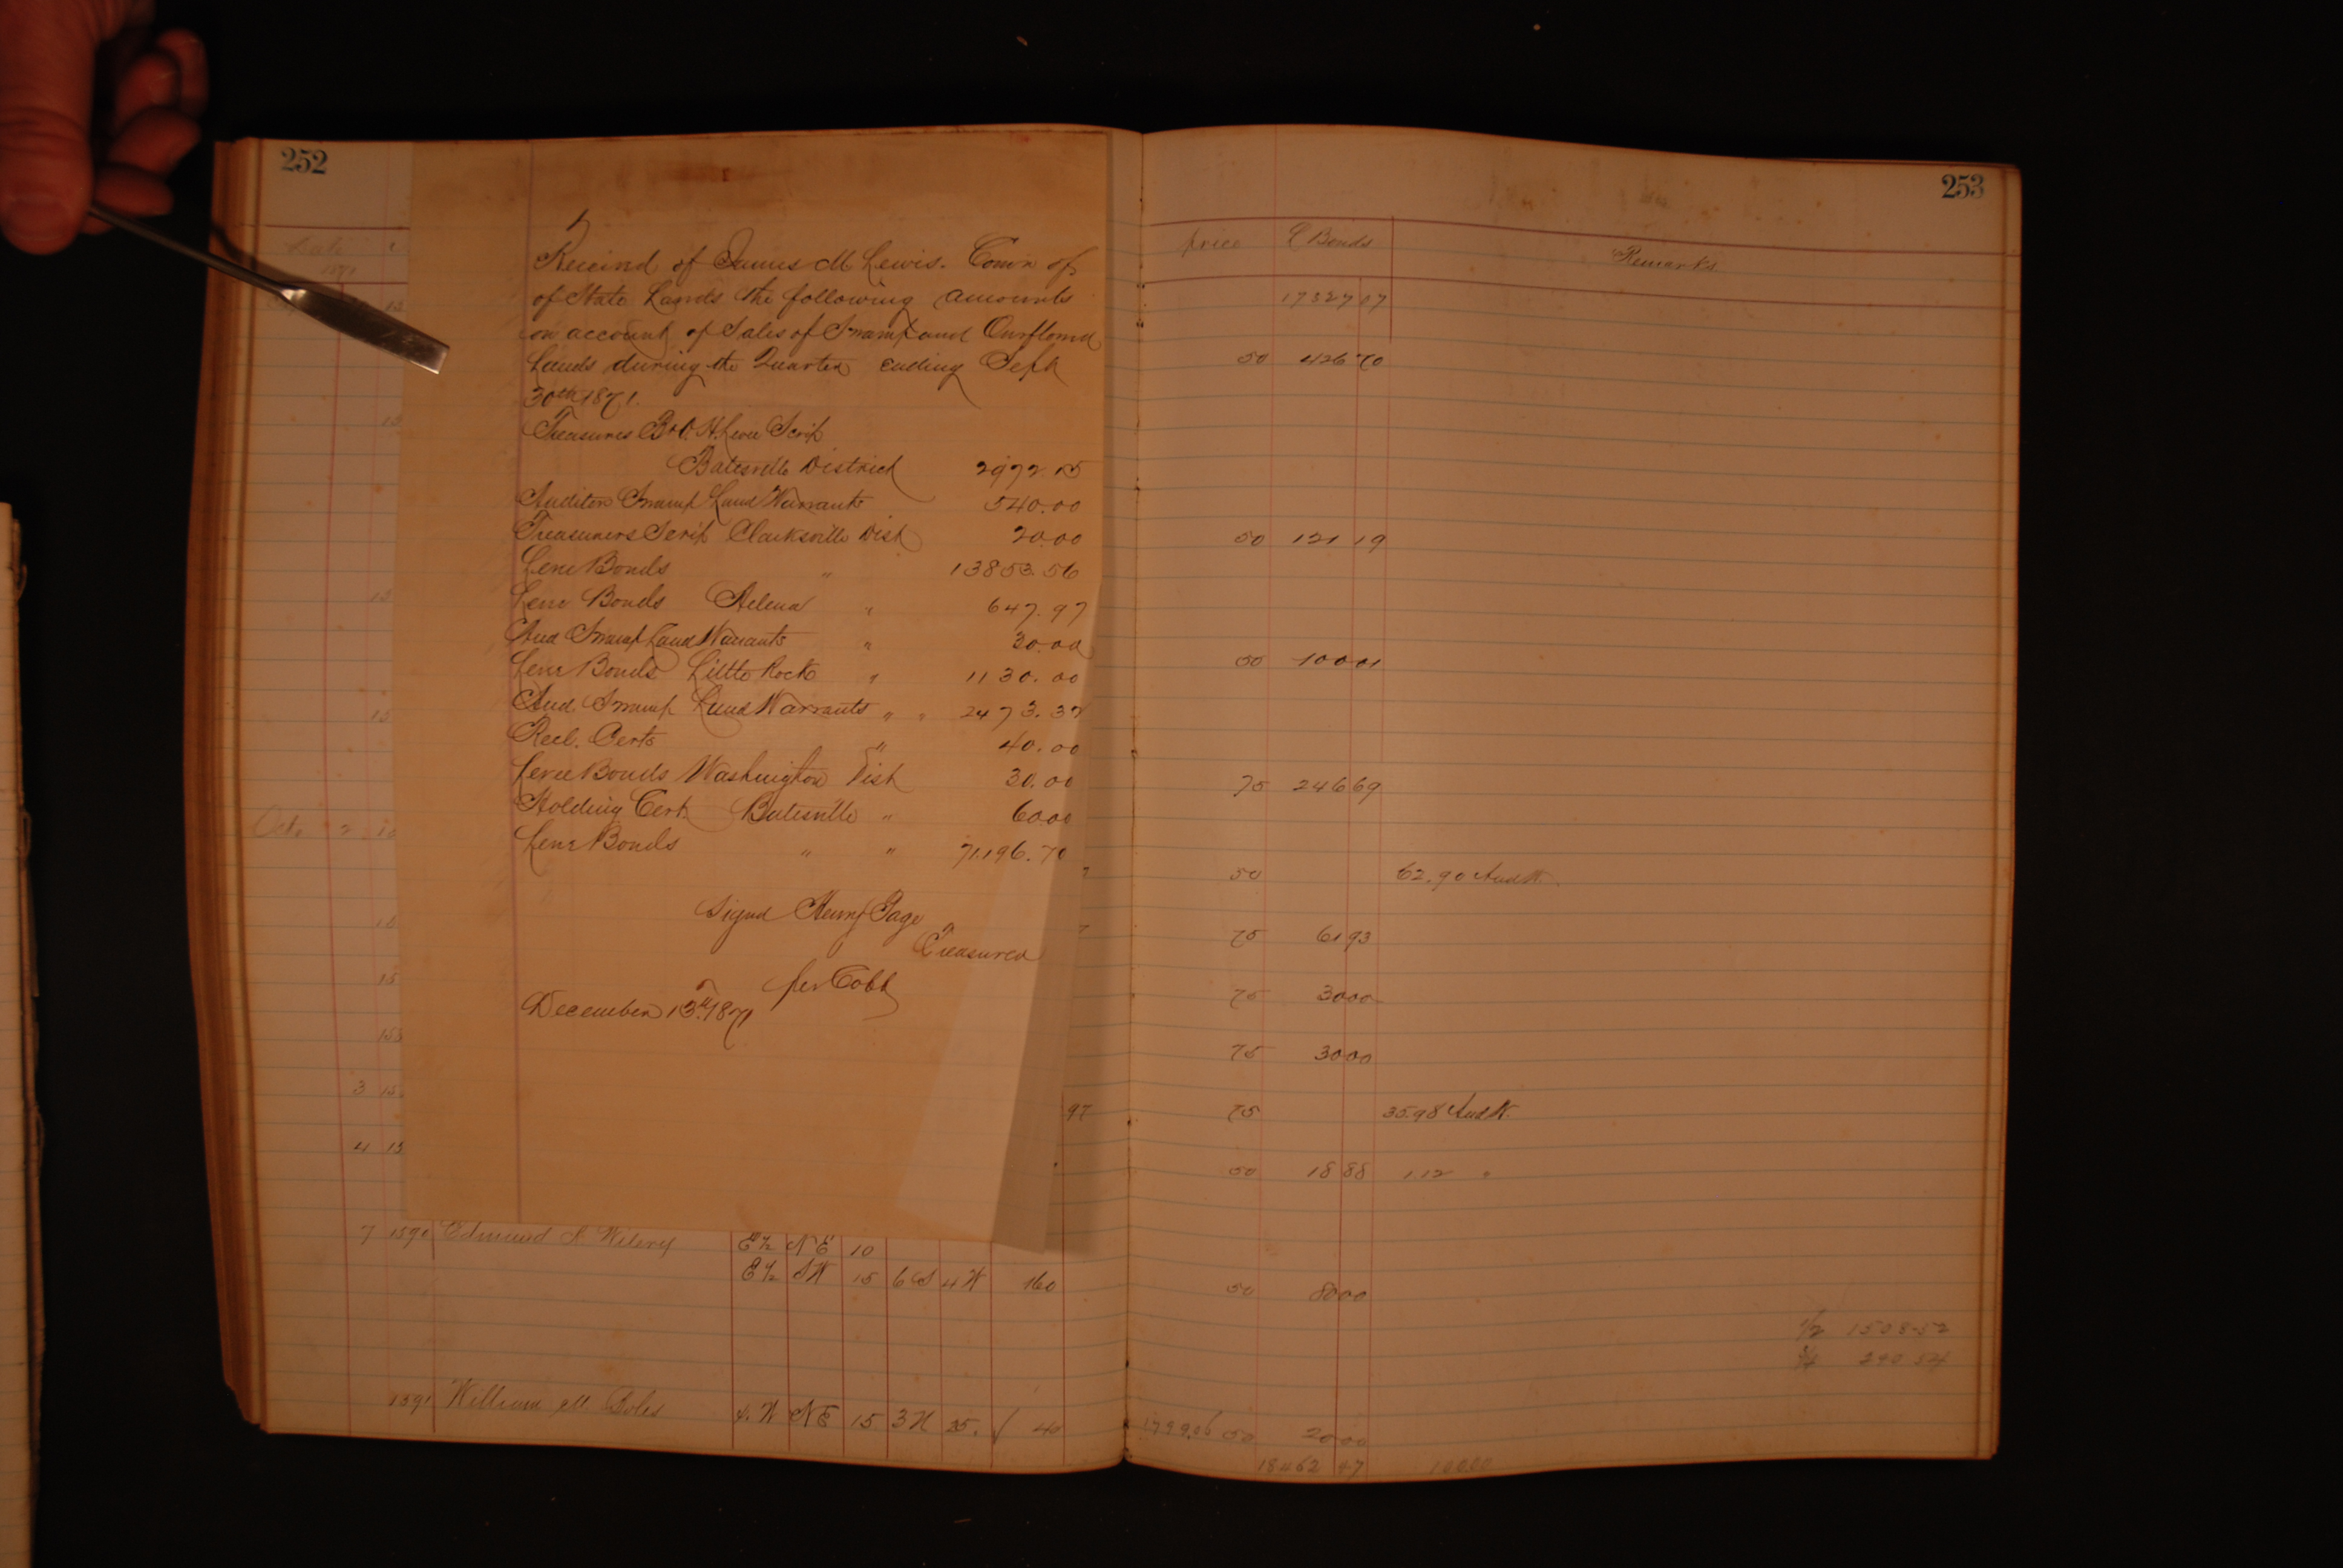 252
Received of James M Lewis. Com'r of
of State Lands the following amounts
on account of Sales of Swamp and Overflowed
Lands during the Quarter ending Sept
30th 1871.
Treasures Scrip
Batesville District 2972.15
Auditors Swamp Land Warrants 540.00
Treasurers Scrip Clarksville Dist 20.00
Levee Bonds " 13853.56
Levee Bonds Helena " 647.97
Aud Swamp Land Warrants " 30.00
Levee Bonds Little Rock " 1130.00
Aud. Swamp Land Warrants " " 2473.37
Recl. Certs " 40.00
Levee Bonds Washington Dist 30.00
Holding Cert. Batesville " 6000
Levee Bonds " " 71.196.70
Signed Henry Page
Treasurer
per Cobb
December 13th 1871
Date
1871
Octo 2 10
15
15
3
97
4 15
7 1590 Edmund E½ NE 10
E½ SW 15 6S 4W 160
1591 William M. Boles NE 15 3N 40
253
price Bonds Remarks
17327 07
50 426 70
50 121 19
50 100 01
75 246 69
50 62.90 Aud W.
75 61 93
75 30 00
75 30 00
75 35.98 Aud W.
50 18 88 1.12 "
50 80 00
1/2 1508.52
3/4 290.54
1799.06 50 20 00
18462 47 100.00